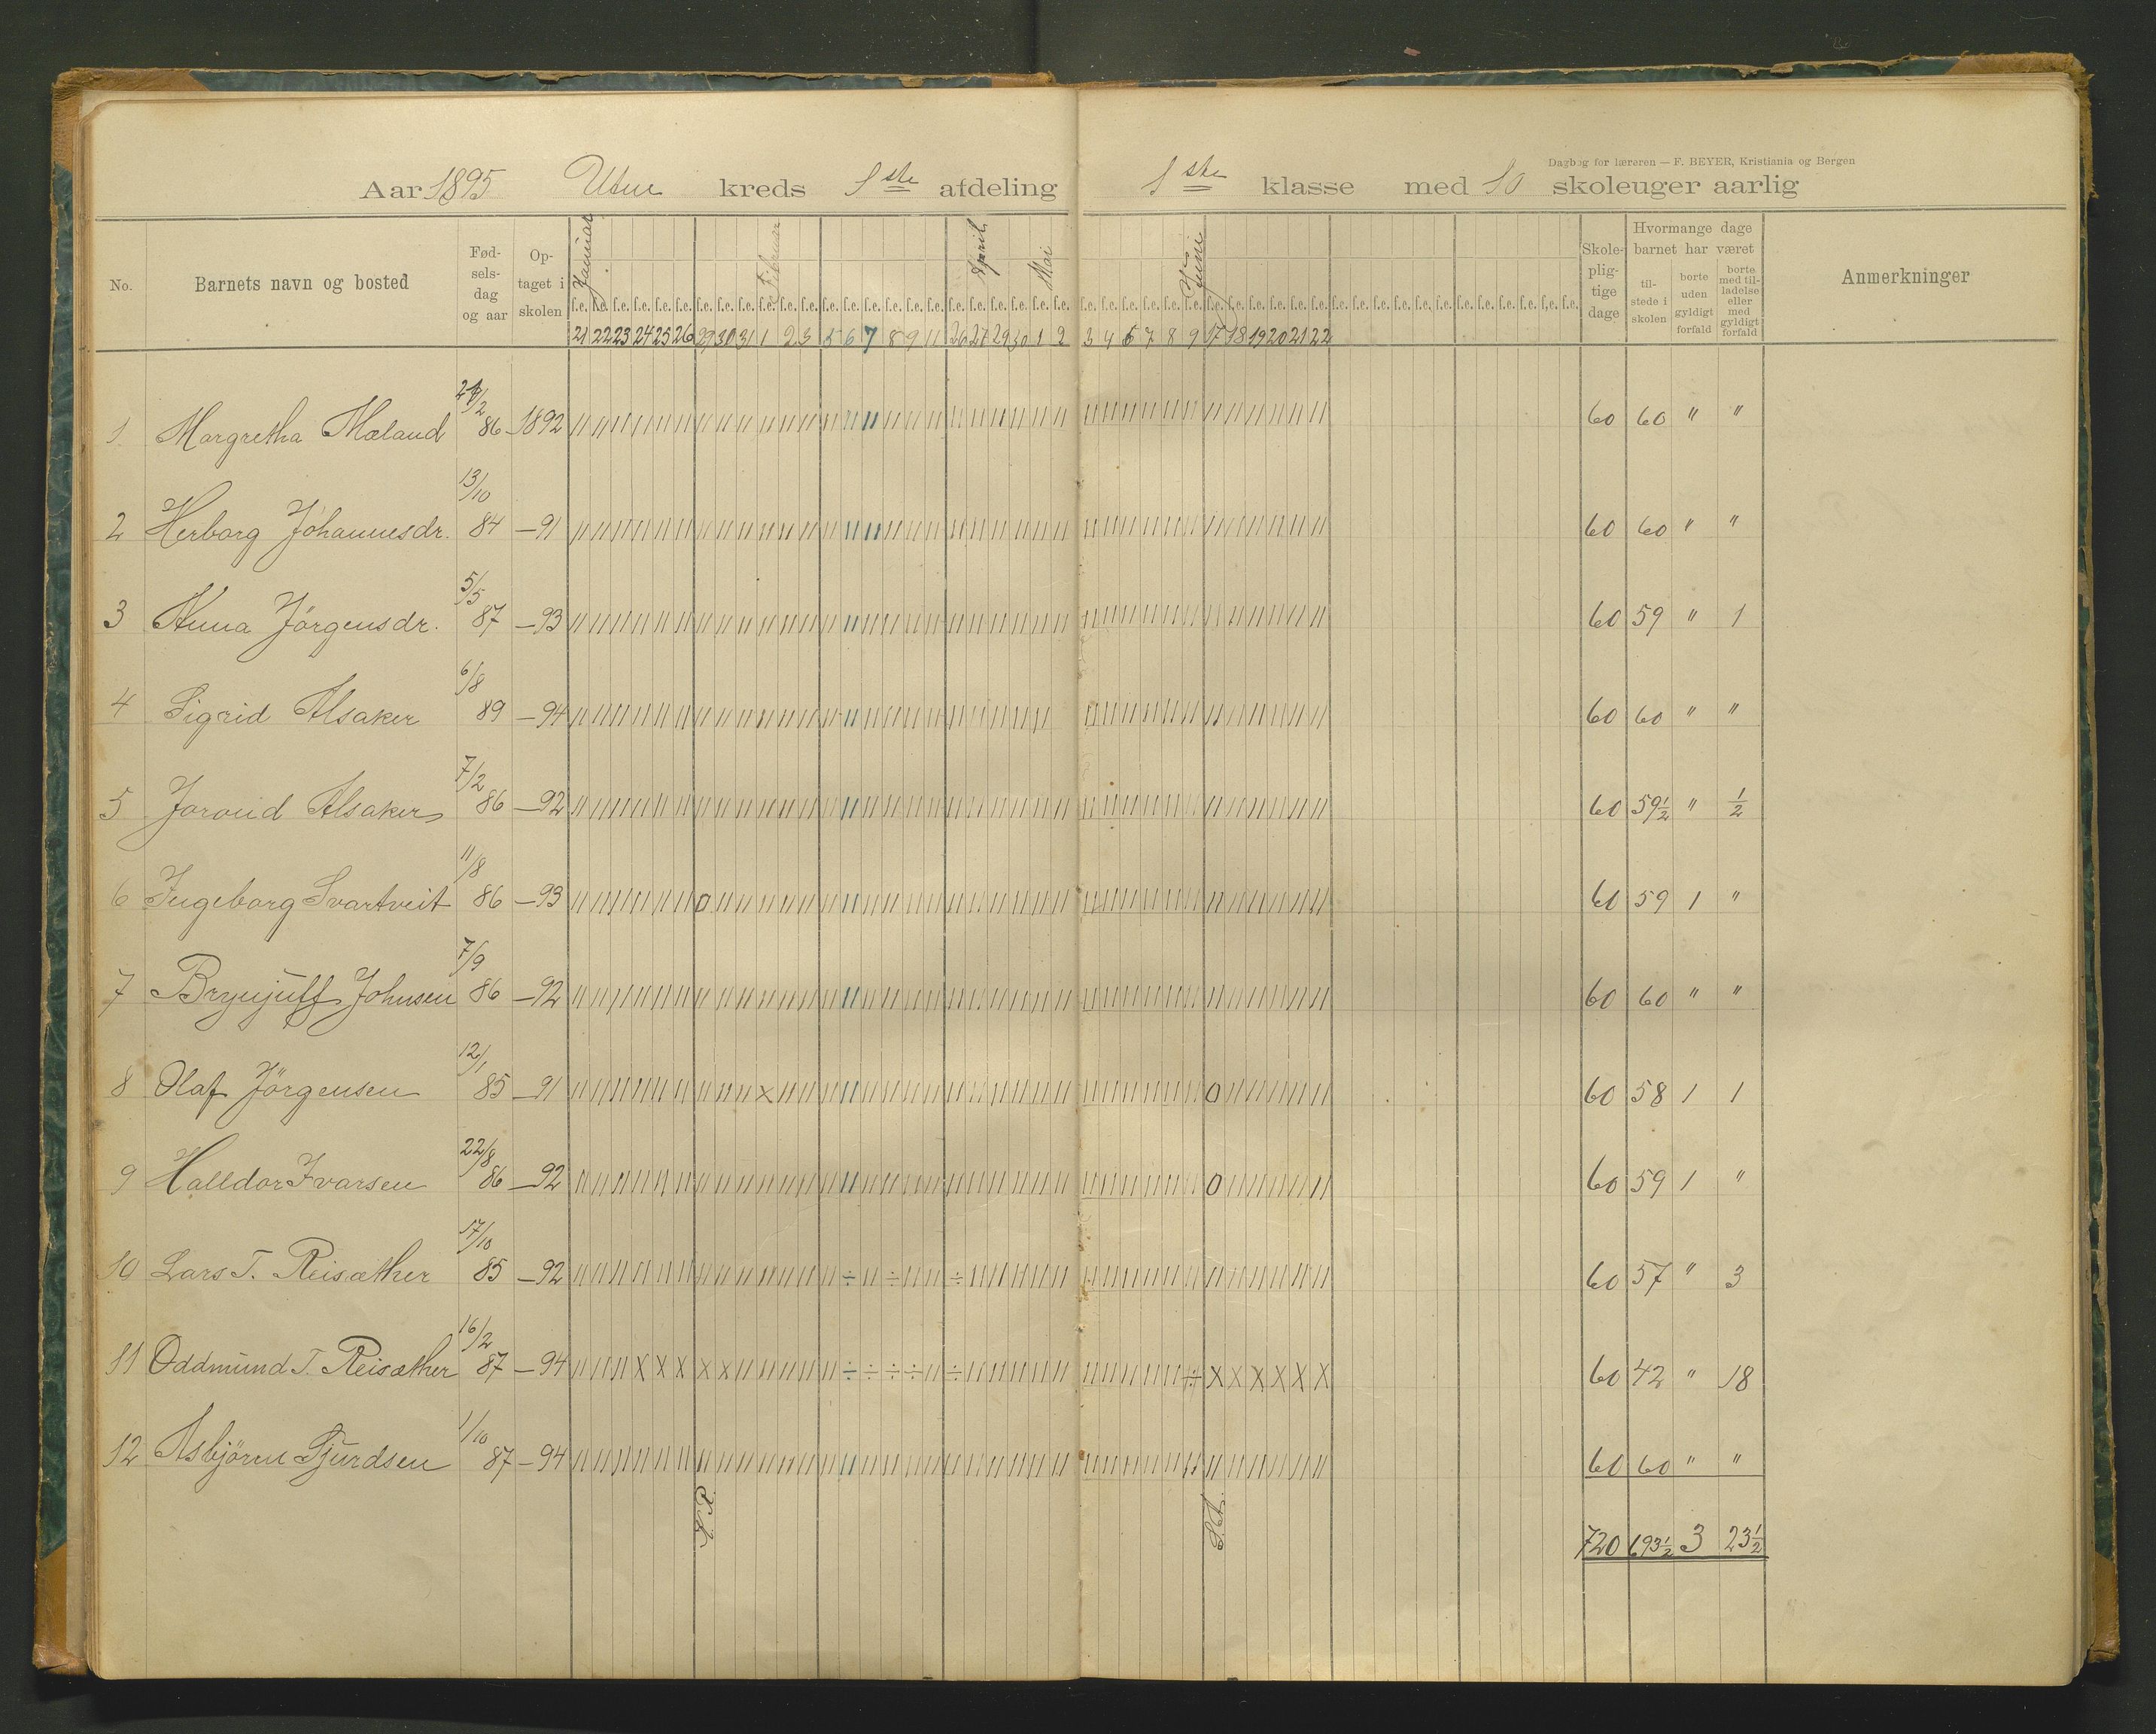 Dagbog for læreren — F. BEYER, Kristiania og Bergen
Aar 1895 Utne kreds 1ste afdeling 1ste klasse med 10 skoleuger aarlig
No. Barnets navn og bosted Fød-sels-dag og aar Op-taget i skolen Januar Februar April Mai Juni Skole-plig-tige dage Hvormange dage barnet har været Anmerkninger
til-stede i skolen borte uden gyldigt forfald borte med til-ladelse eller med gyldigt forfald
f.e. f.e. f.e. f.e. f.e. f.e. f.e. f.e. f.e. f.e. f.e. f.e. f.e. f.e. f.e. f.e. f.e. f.e. f.e. f.e. f.e. f.e. f.e. f.e. f.e. f.e. f.e. f.e. f.e. f.e. f.e. f.e. f.e. f.e. f.e. f.e. f.e. f.e. f.e. f.e. f.e. f.e. f.e. f.e. f.e. f.e. f.e. f.e.
21 22 23 24 25 26 29 30 31 1 2 3 5 6 7 8 9 11 26 27 29 30 1 2 3 4 6 7 8 9 17 18 19 20 21 22
1. Margretha Mæland 2/2 86 1892 60 60 " "
2 Herborg Johannesdr. 13/10 84 —91 60 60 " "
3 Anna Jörgensdr. 5/5 87 —93 60 59 " 1
4 Sigrid Alsaker 6/8 89 —94 60 60 " "
5 Joronid Alsaker 7/2 86 —92 60 59½ " ½
6 Ingeborg Svartveit 11/8 86 —93 O 60 59 1 "
7 Brynjulf Johnsen 7/9 86 —92 60 60 " "
8 Olaf Jörgensen 12/1 85 —91 X O 60 58 1 1
9 Halldor Ivarsen 22/8 86 —92 O 60 59 1 "
10 Lars T. Reisæther 17/10 85 —92 ÷ ÷ ÷ 60 57 " 3
11 Oddmund T. Reisæther 16/2 87 —94 X X X X X ÷ ÷ ÷ ÷ ÷ ÷ X X X X X X 60 42 " 18
12 Asbjörn Sjurdsen 1/10 87 —94 60 60 " "
720 693½ 3 23½